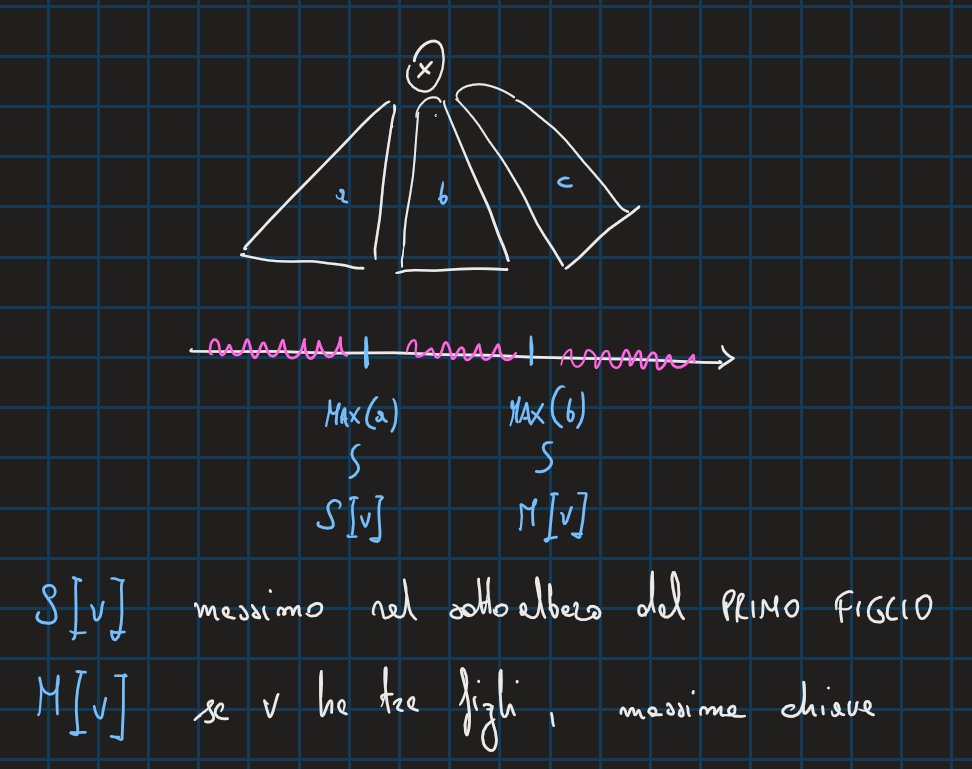 x
a b c
MAX(a) MAX(b)
S[v] M[v]
S[v] massimo nel sottoalbero del PRIMO FIGLIO
M[v] se v ha tre figli, massima chiave